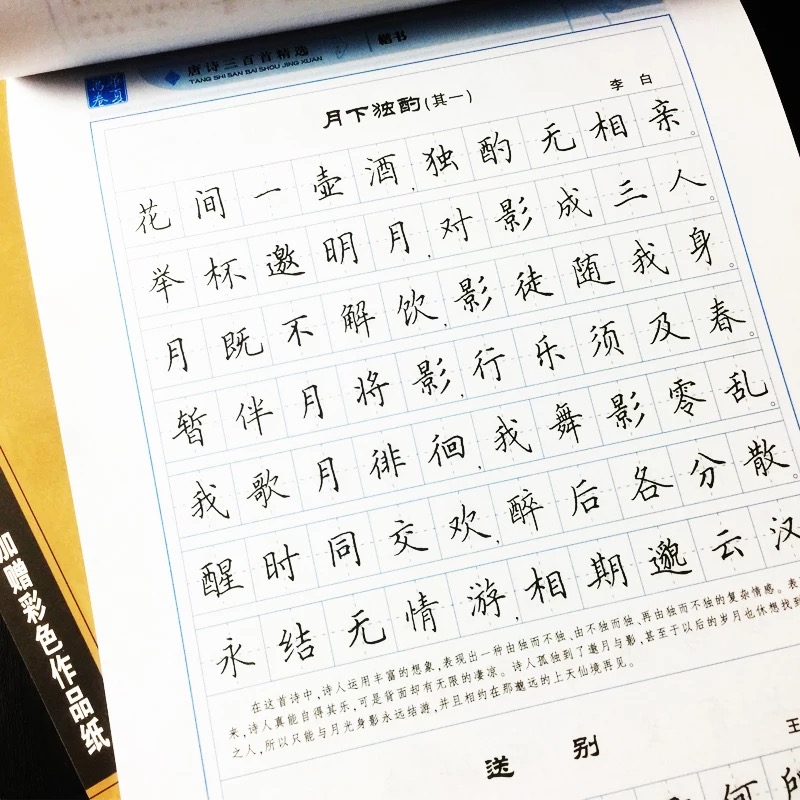 唐诗三百首精选 楷书
TANG SHI SAN BAI SHOU JING XUAN
月下独酌(其一)
李 白
花间一壶酒,独酌无相亲。
举杯邀明月,对影成三人。
月既不解饮,影徒随我身。
暂伴月将影,行乐须及春。
我歌月徘徊,我舞影零乱。
醒时同交欢,醉后各分散。
永结无情游,相期邈云汉
在这首诗中,诗人运用丰富的想象,表现出一种由独而不独、由不独而独、再由独而不独的复杂情感。表
来,诗人真能自得其乐,可是背面却有无限的凄凉。诗人孤独到了邀月与影,甚至于以后的岁月也休想找到
之人,所以只能与月光身影永远结游,并且相约在那邈远的上天仙境再见。
送 别
王
何所
加赠彩色作品纸